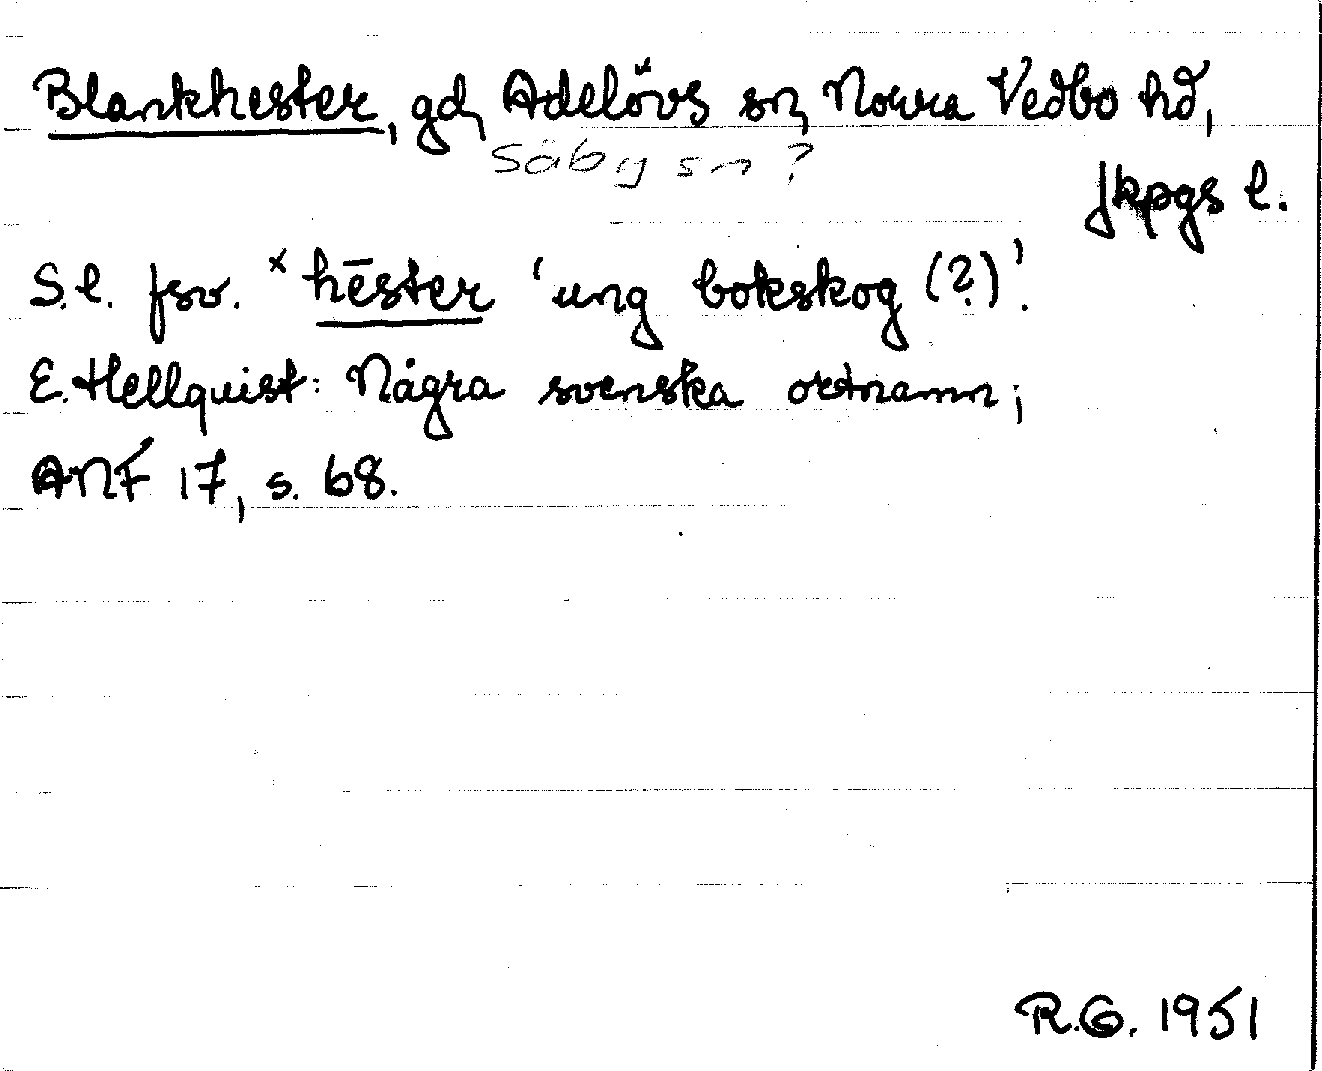 Blankhester, gd, Adelövs sn, Norra Vedbo hd,
Säby sn?
Jkpgs l.
S.l. fsv. *hēster 'ung bokskog (?)'.
E. Hellquist: Några svenska ortnamn;
ANF 17, s. 68.
R.G. 1951